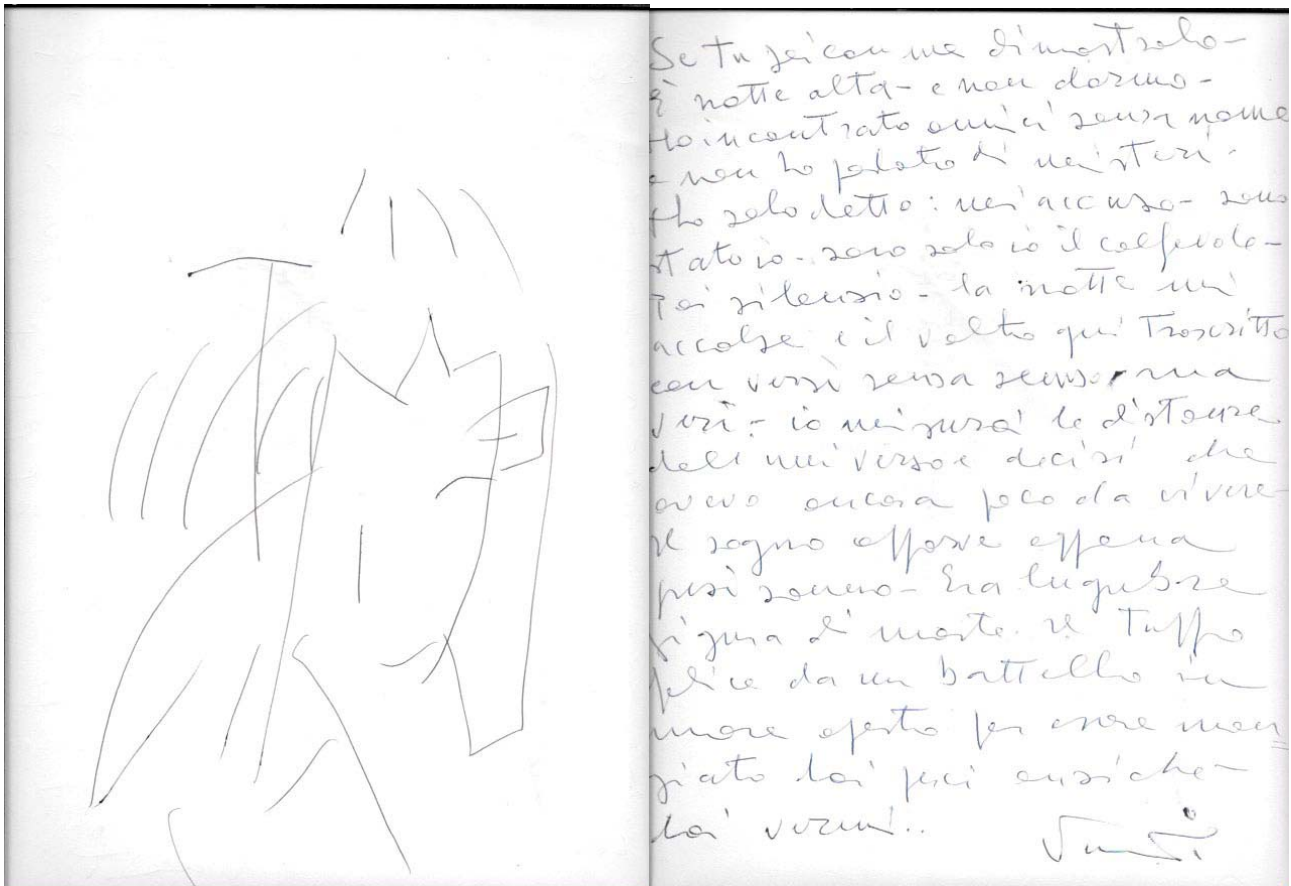 Se tu sei con me dimostralo-
È notte alta- e non dormo-
Ho incontrato amici senza nome
e non ho parlato di misteri-
Ho solo detto: mi accuso- sono
stato io- sono solo io il colpevole-
Poi silenzio- la notte mi
accolse e il volto qui trascritto
con versi senza senso, ma
veri- io misurai le distanze
dell'universo e decisi che
avevo ancora poco da vivere-
Il sogno apparve appena
presi sonno- Era lugubre
figura di morte. Il tuffo
felice da un battello in
mare aperto per essere man=
giato dai pesci anziché-
dai vermi..